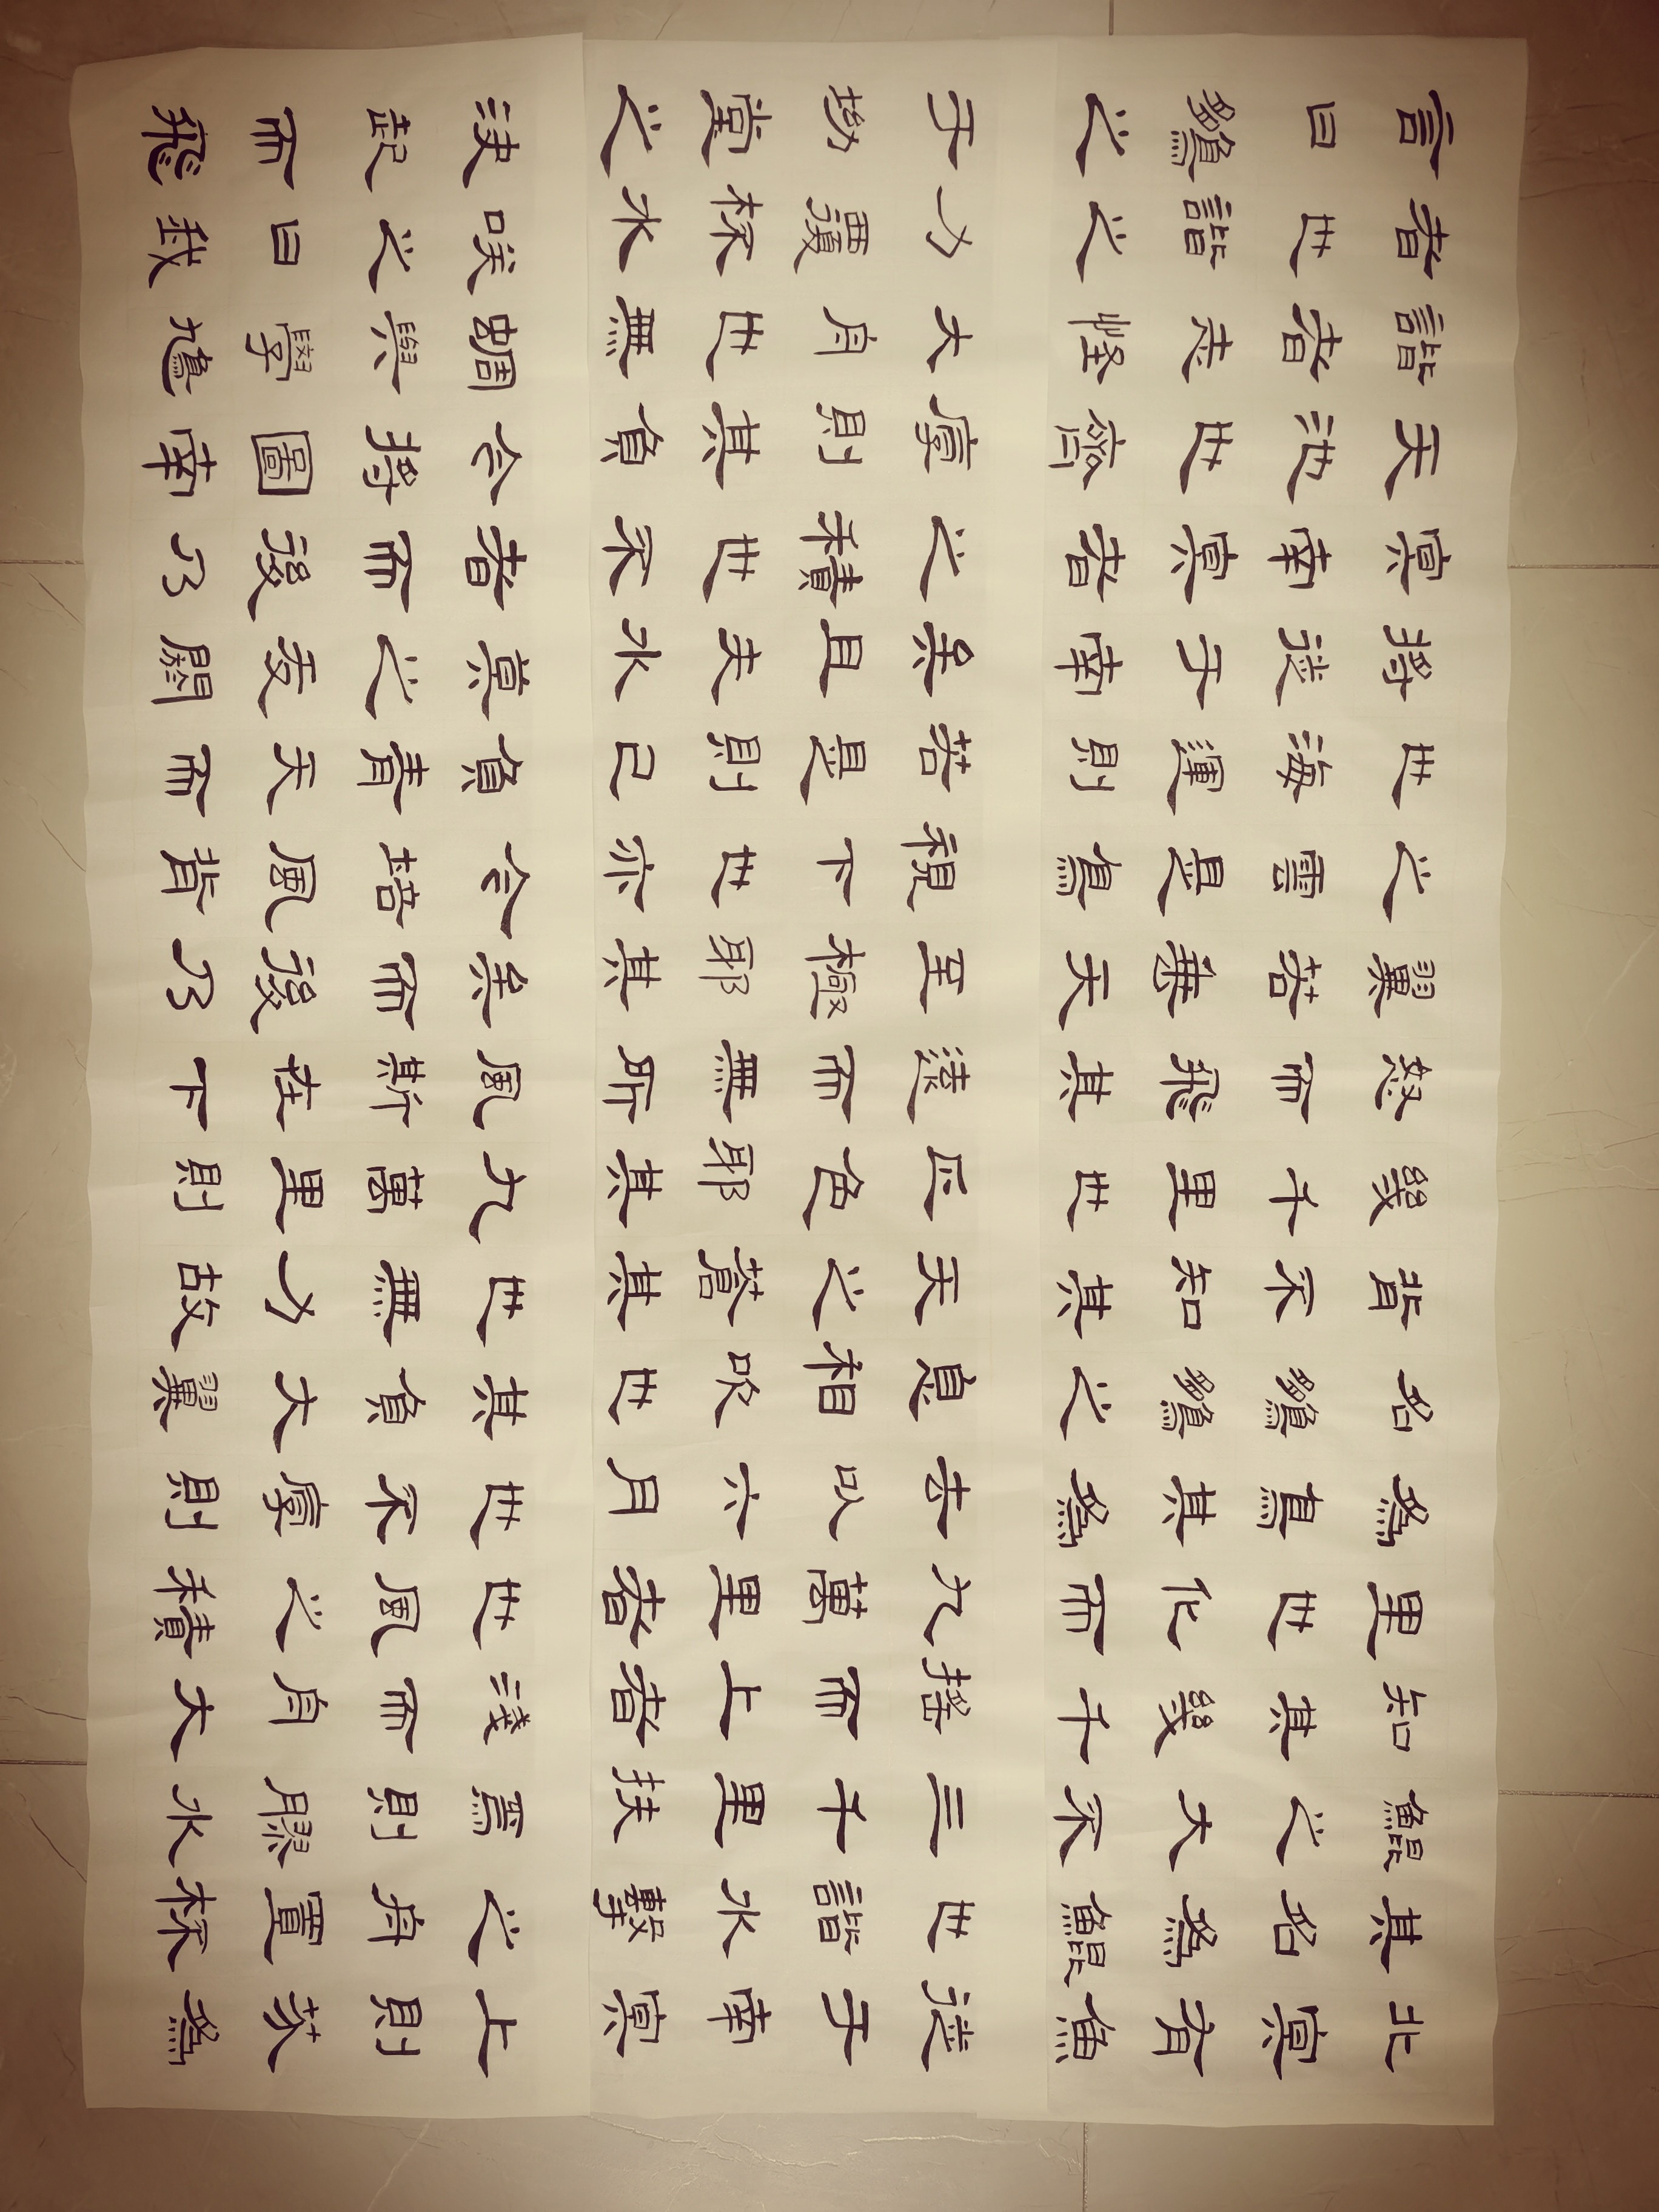 北冥有魚
其名為鯤
鯤之大不
知其幾千
里也化而
為鳥其為
名鵬鵬之
背不知其
幾千里也
怒而飛其
翼若垂天
之雲是鳥
也海運則
將徙于南
冥南冥者
天池也齊
諧者志怪
者也諧之
言曰鵬之
徙于南冥
也諧水擊
三千里扶
搖而上者
九萬里者
去以六月
息相吹也
天之蒼其
正色邪其
遠而無所
至極邪其
視下也亦
若是則已
矣且夫水
之積也不
厚則其負
大舟也無
力覆杯水
于坳堂之
上則芥為
之舟置杯
焉則膠水
淺而舟大
也風之積
也不厚則
其負大翼
也無力故
九萬里則
風斯在下
矣而後乃
今培風背
負青天而
莫之夭閼
者而後乃
今將圖南
蜩與學鳩
笑之曰我
決起而飛